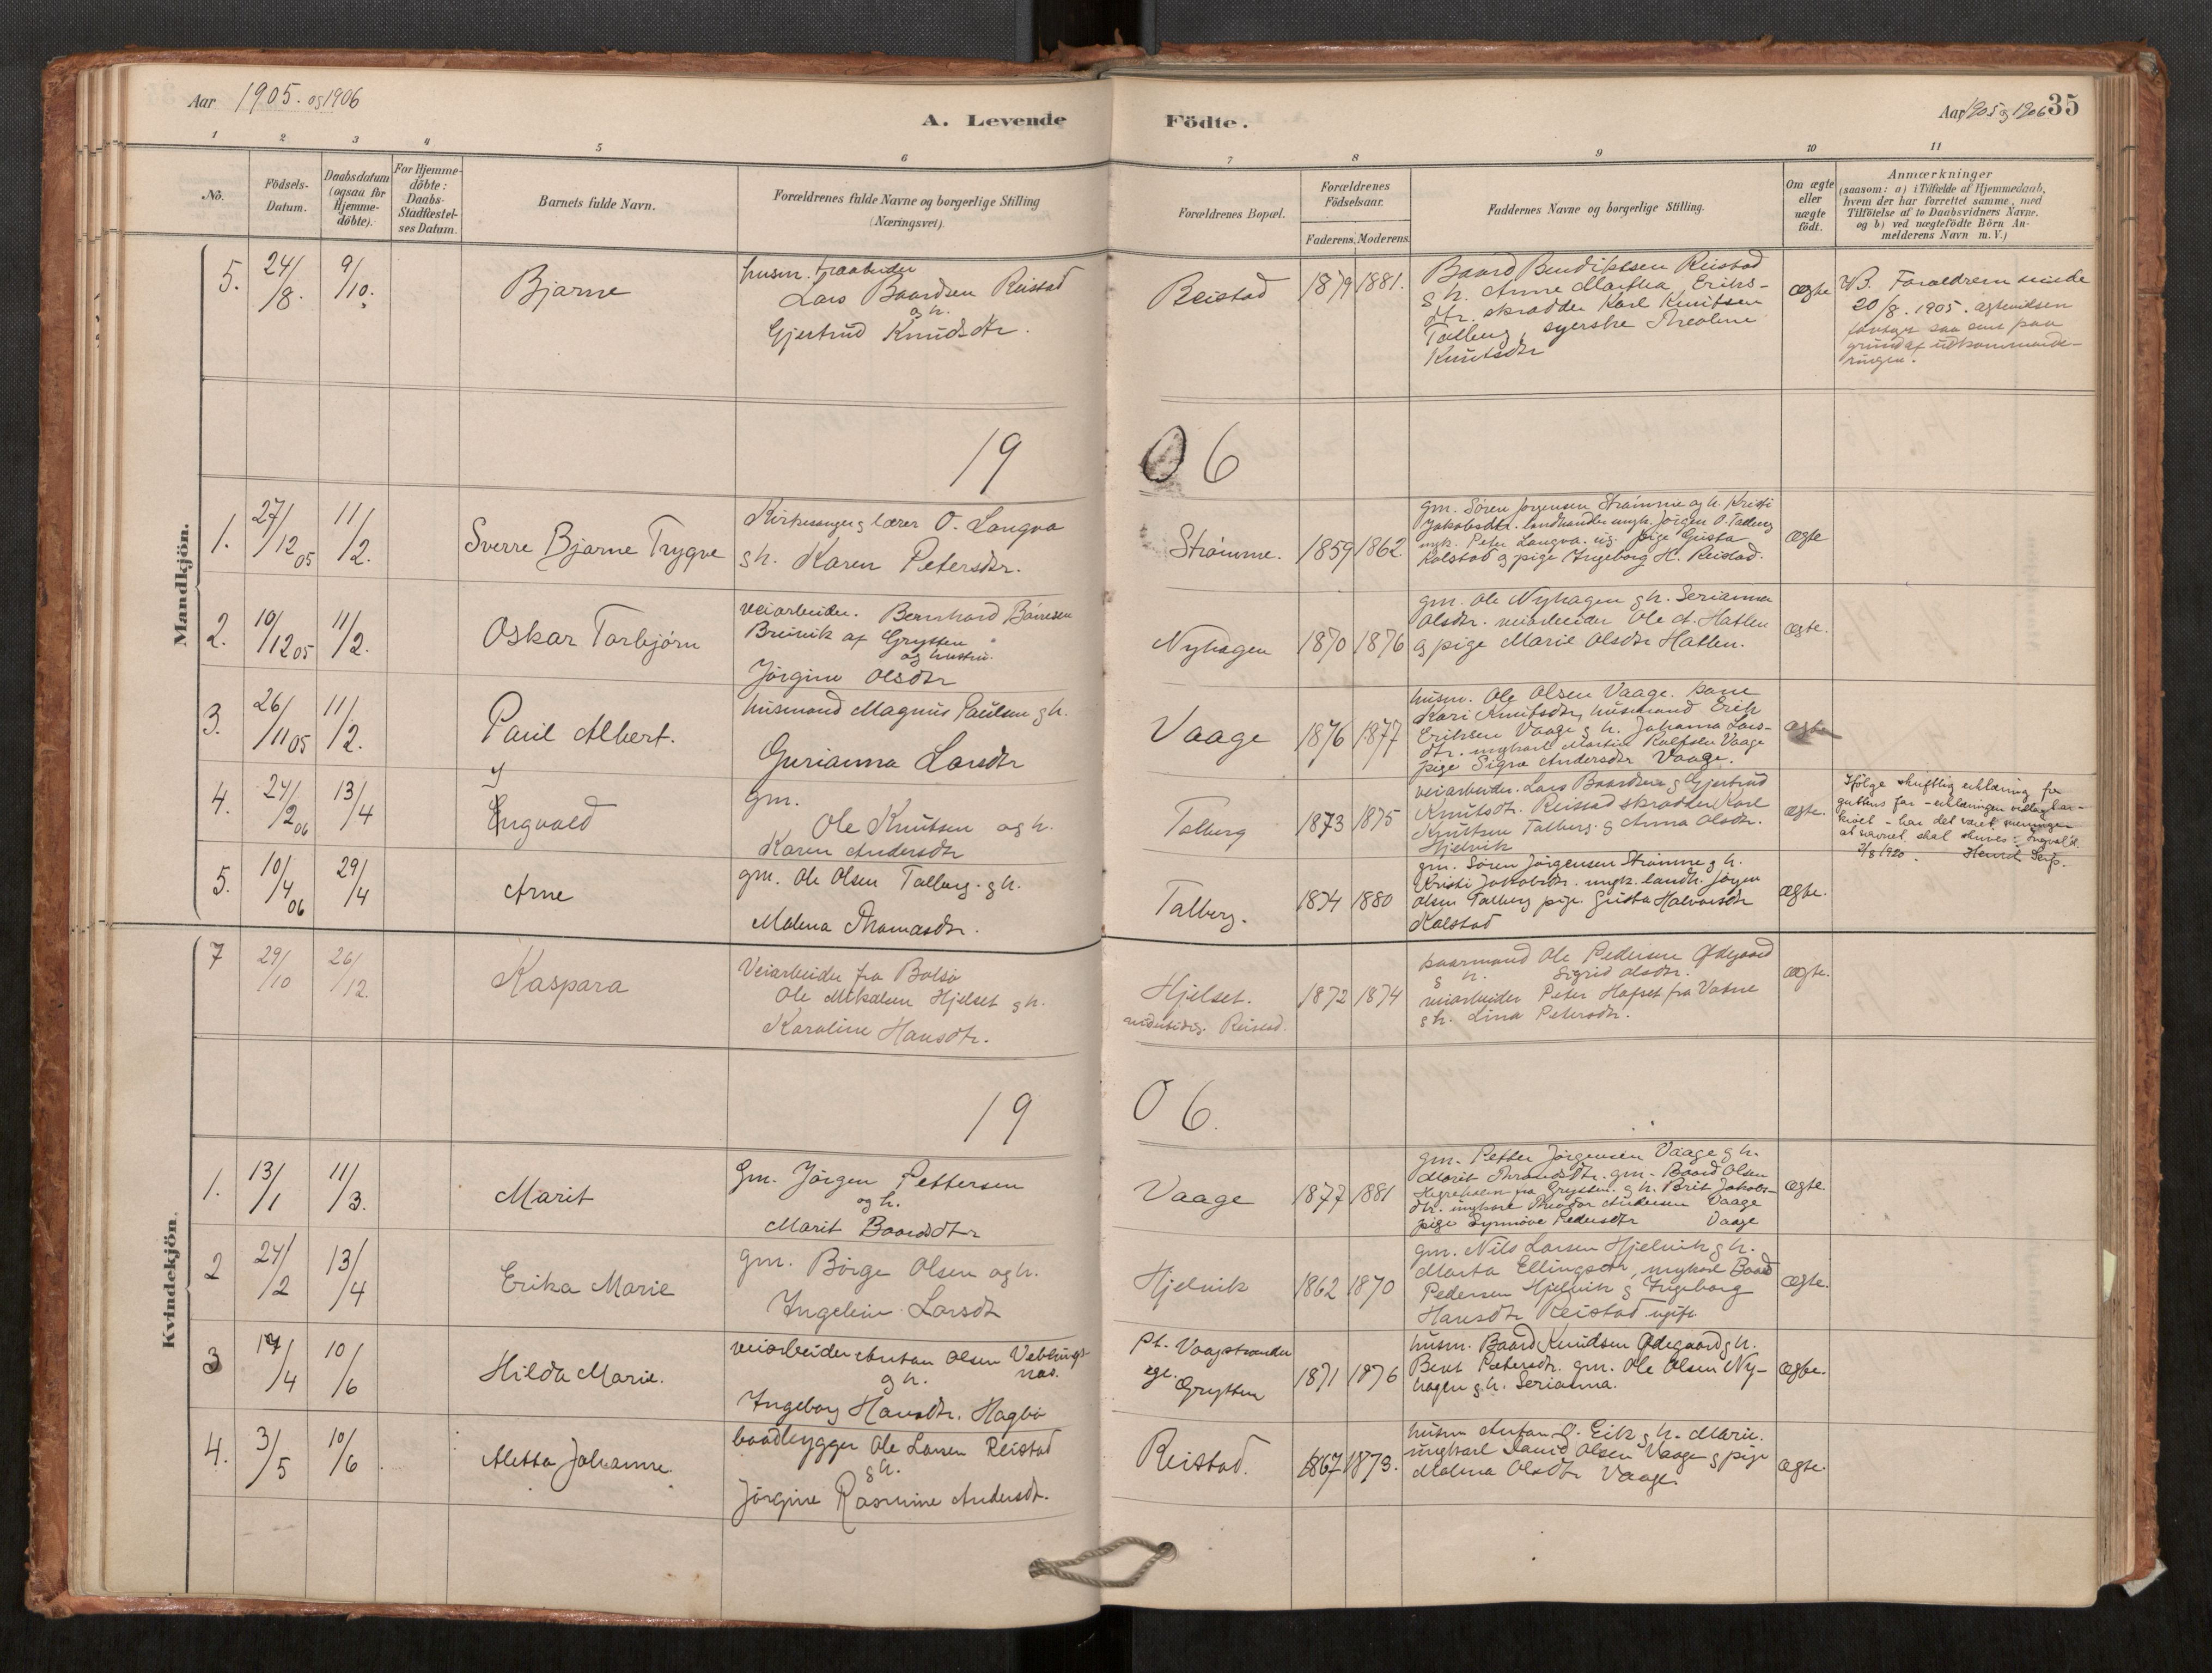 Aar 1905. og 1906
A. Levende
Födte.
Aar 1905 og 1906 35
1 2 3 4 5 6 7 8 9 10 11
No.
Födsels-
Datum.
Daabsdatum
(ogsaa for
Hjemme-
döbte).
For Hjemme-
döbte:
Daabs-
Stadfæstel-
ses Datum.
Barnets fulde Navn.
Forældrenes fulde Navne og borgerlige Stilling
(Næringsvei).
Forældrenes Bopæl.
Forældrenes
Födselsaar.
Faderens. Moderens.
Faddernes Navne og borgerlige Stilling.
Om ægte
eller
uægte
födt.
Anmærkninger
(saasom: a) i Tilfælde af Hjemmedaab,
hvem der har forrettet samme, med
Tilföielse af to Daabsvidners Navne.
og b) ved uægtefödte Börn An-
melderens Navn m. V.)
Mandkjön.
5. 24/8. 9/10.
Bjarne
husm.
Lars Baardsen Reistad
og h.
Gjertrud Knudsdtr.
Reistad
1879 1881.
Baard Bendiksen Reistad
g h. Anne Martha Eriks-
dtr. skrædder Karl Knutsen
Talberg, syerske Theoline
Knutsdtr
ægte
NB. Forældrene viede
20/8. 1905. ægtevielsen
foregik saa sent paa
grund af udkommande-
ringen.
19 06
1. 27/12 05 11/2.
Sverre Bjarne Trygve
Kirkesanger g lærer O. Langva
g h. Karen Petersdtr.
Strömme.
1859 1862.
gm. Sören Jörgensen Strömme og h. Kristi
Jakobsdtr. landhandler ungk. Jörgen O. Talberg
ungk. Peter Langva. ug. pige Gusta
Kolstad g pige Ingeborg H. Reistad.
ægte
2. 10/12 05 11/2.
Oskar Torbjörn
veiarbeider. Bernhard Börresen
Breivik af Grytten
og hustru.
Jörgine Olsdtr
Nyhagen
1870 1876
gm. Ole Nyhagen g h. Serianna
Olsdtr. veiarbeider Ole A. Hatlen
g pige Marie Olsdtr Hatlen.
ægte.
3. 26/11 05 11/2.
Paul Albert.
husmand Magnus Paulsen g h.
Gurianna Larsdtr
Vaage
1876 1877
husm. Ole Olsen Vaage. kone
Kari Knutsdtr, husmand Erik
Eriksen Vaage g h. Johanna Lars-
dtr. ungkarl Martin Rolfsen Vaage
pige Signe Andersdtr Vaage.
ægte
4. 24/2 06 13/4
J
Engvald
gm.
Ole Knutsen og h.
Karen Andersdtr
Talberg
1873 1875
veiarbeider. Lars Baardsen g Gjertrud
Knutsdtr. Reistad skrædder Karl
Knutsen Talberg. g Anna Olsdtr.
Hjelvik
ægte.
Ifölge skriftlig erklæring fra
guttens far - erklæringen vedlagt
- har det været meningen
at navnet skal skrives: Ingvald.
2/8 1920.
5. 10/4 06 29/4
Arne
gm. Ole Olsen Talberg. g h.
Malena Thomasdtr.
Talberg.
1874 1880
gm. Sören Jörgensen Strömme g h.
Kristi Jakobsdtr. ungk. landh. Jörgen
Olsen Talberg pige. Gusta Halvorsdtr
Kolstad
ægte.
Kvindekjön.
7 29/10 26/12.
Kaspara
Veiarbeider fra Bolsö
Ole Mikalsen Hjelset g h.
Karoline Hansdtr.
Hjelset.
Reistad.
1872 1874
kaarmand Ole Pedersen Ødegaard
g h. Sigrid Olsdtr.
veiarbeider Peter Hafset fra Vatne
g h. Lina Petersdtr.
ægte.
19 06.
1. 13/1 11/3.
Marit
Gm. Jörgen Pettersen
og h.
Marit Baardsdtr
Vaage
1877 1881
gm. Petter Jörgensen Vaage g h.
Marit Thronsdtr. gm. Baard Olsen
Hegreholm fra Grytten. g h. Brit Jakobs-
dtr. ungkarl Theodor Andersen Vaage
pige Synnöve Pedersdtr Vaage
ægte.
2 24/2 13/4
Erika Marie
gm. Börge Olsen og h.
Ingelein Larsdtr
Hjelvik
1862 1870
gm. Nils Larsen Hjelvik g h.
Marta Ellingsdtr, ungkarl Baard
Pedersen Hjelvik g Ingeborg
Hansdtr Reistad ugift.
ægte.
3 17/4 10/6
Hilda Marie.
veiarbeider Anton Olsen Veblungs-
g h. næs.
Ingeborg Hansdtr. Hagbö
Pt. Vaagstranden
egl. Grytten
1871 1876
husm. Baard Knudsen Ødegaard g h.
Berit Petersdtr. gm. Ole Olsen Ny-
hagen g h. Serianna.
ægte.
4. 3/5 10/6
Aletta Johanne.
baadbygger Ole Larsen Reistad
g h.
Jörgine Rasmine Andersdt.
Reistad.
1867 1873.
husm Anton O. Eik g h. Marie.
ungkarl David Olsen Vaage g pige
Malena Olsdtr Vaage.
ægte.